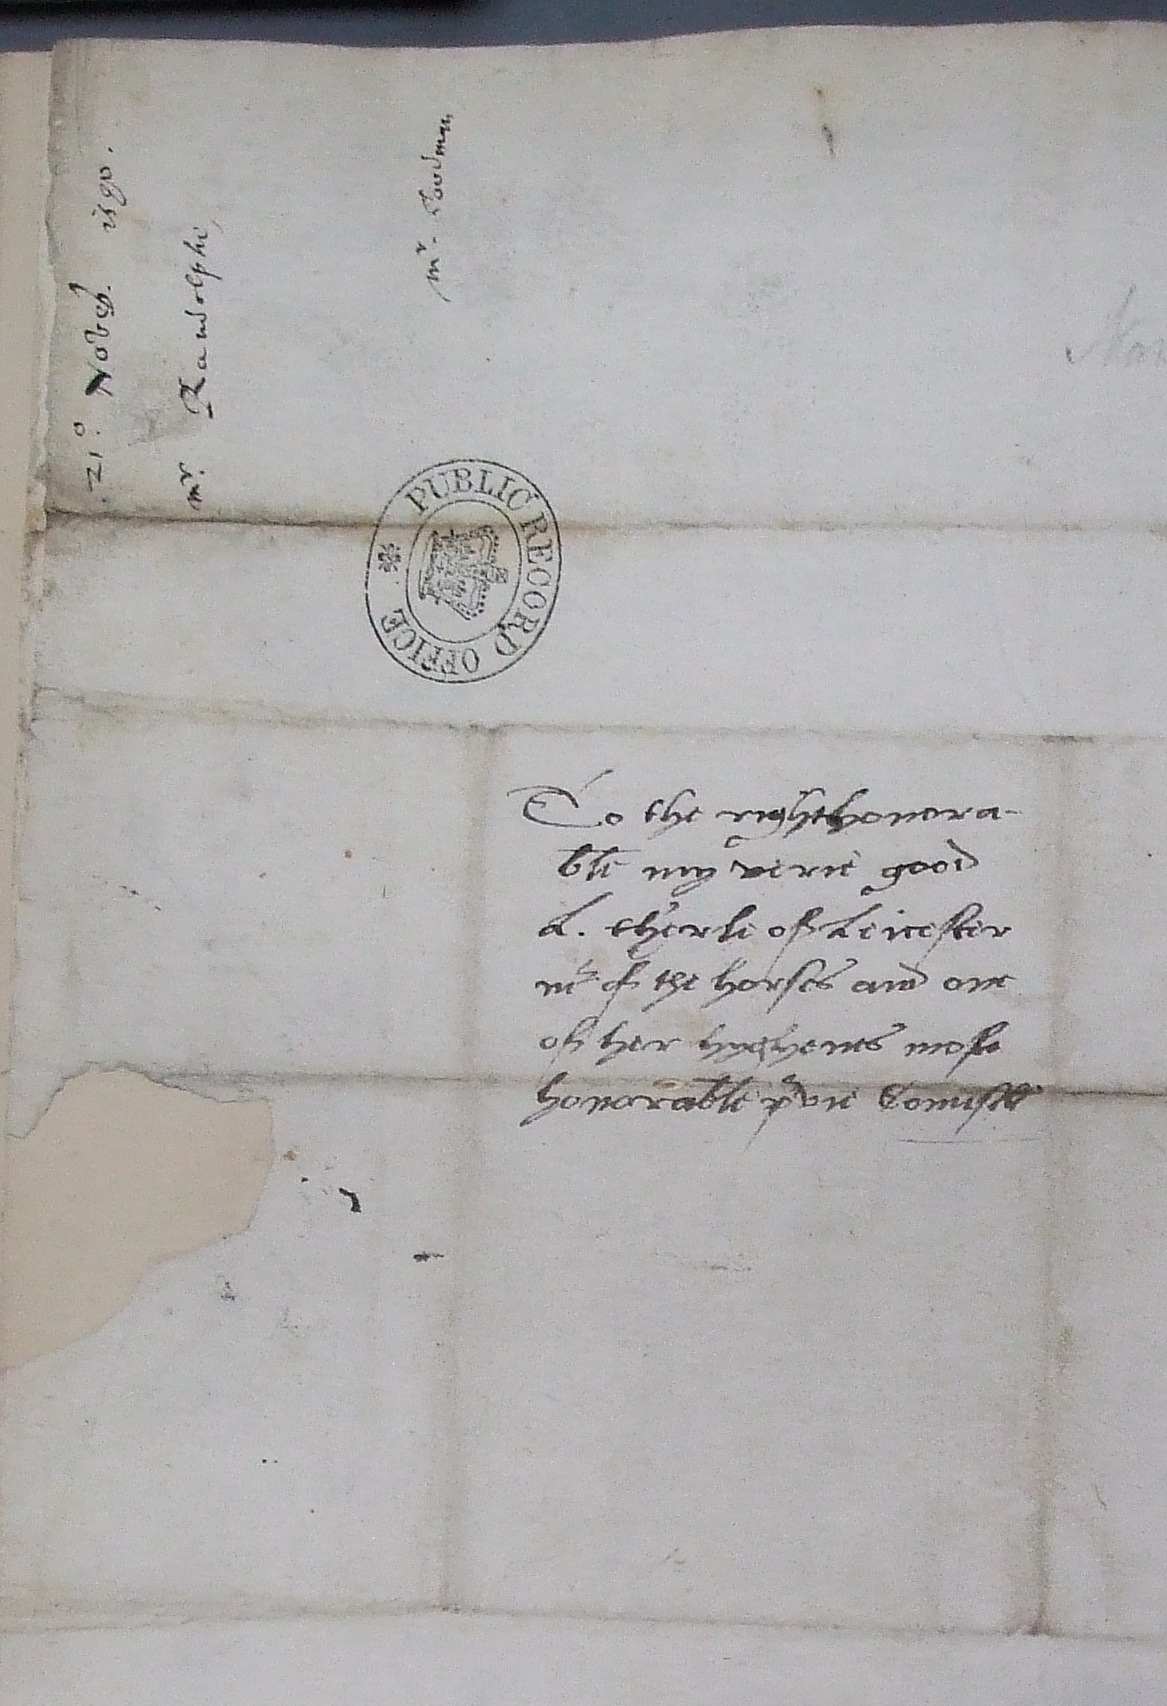 21º Novēb. 1580.
mr. Randolphe,
mr.
PUBLIC RECORD OFFICE
To the right honora-
ble my verie good
L. therle of Leicester
mr of the horses and one
of her hyghenes most
honorable pvie Counsell